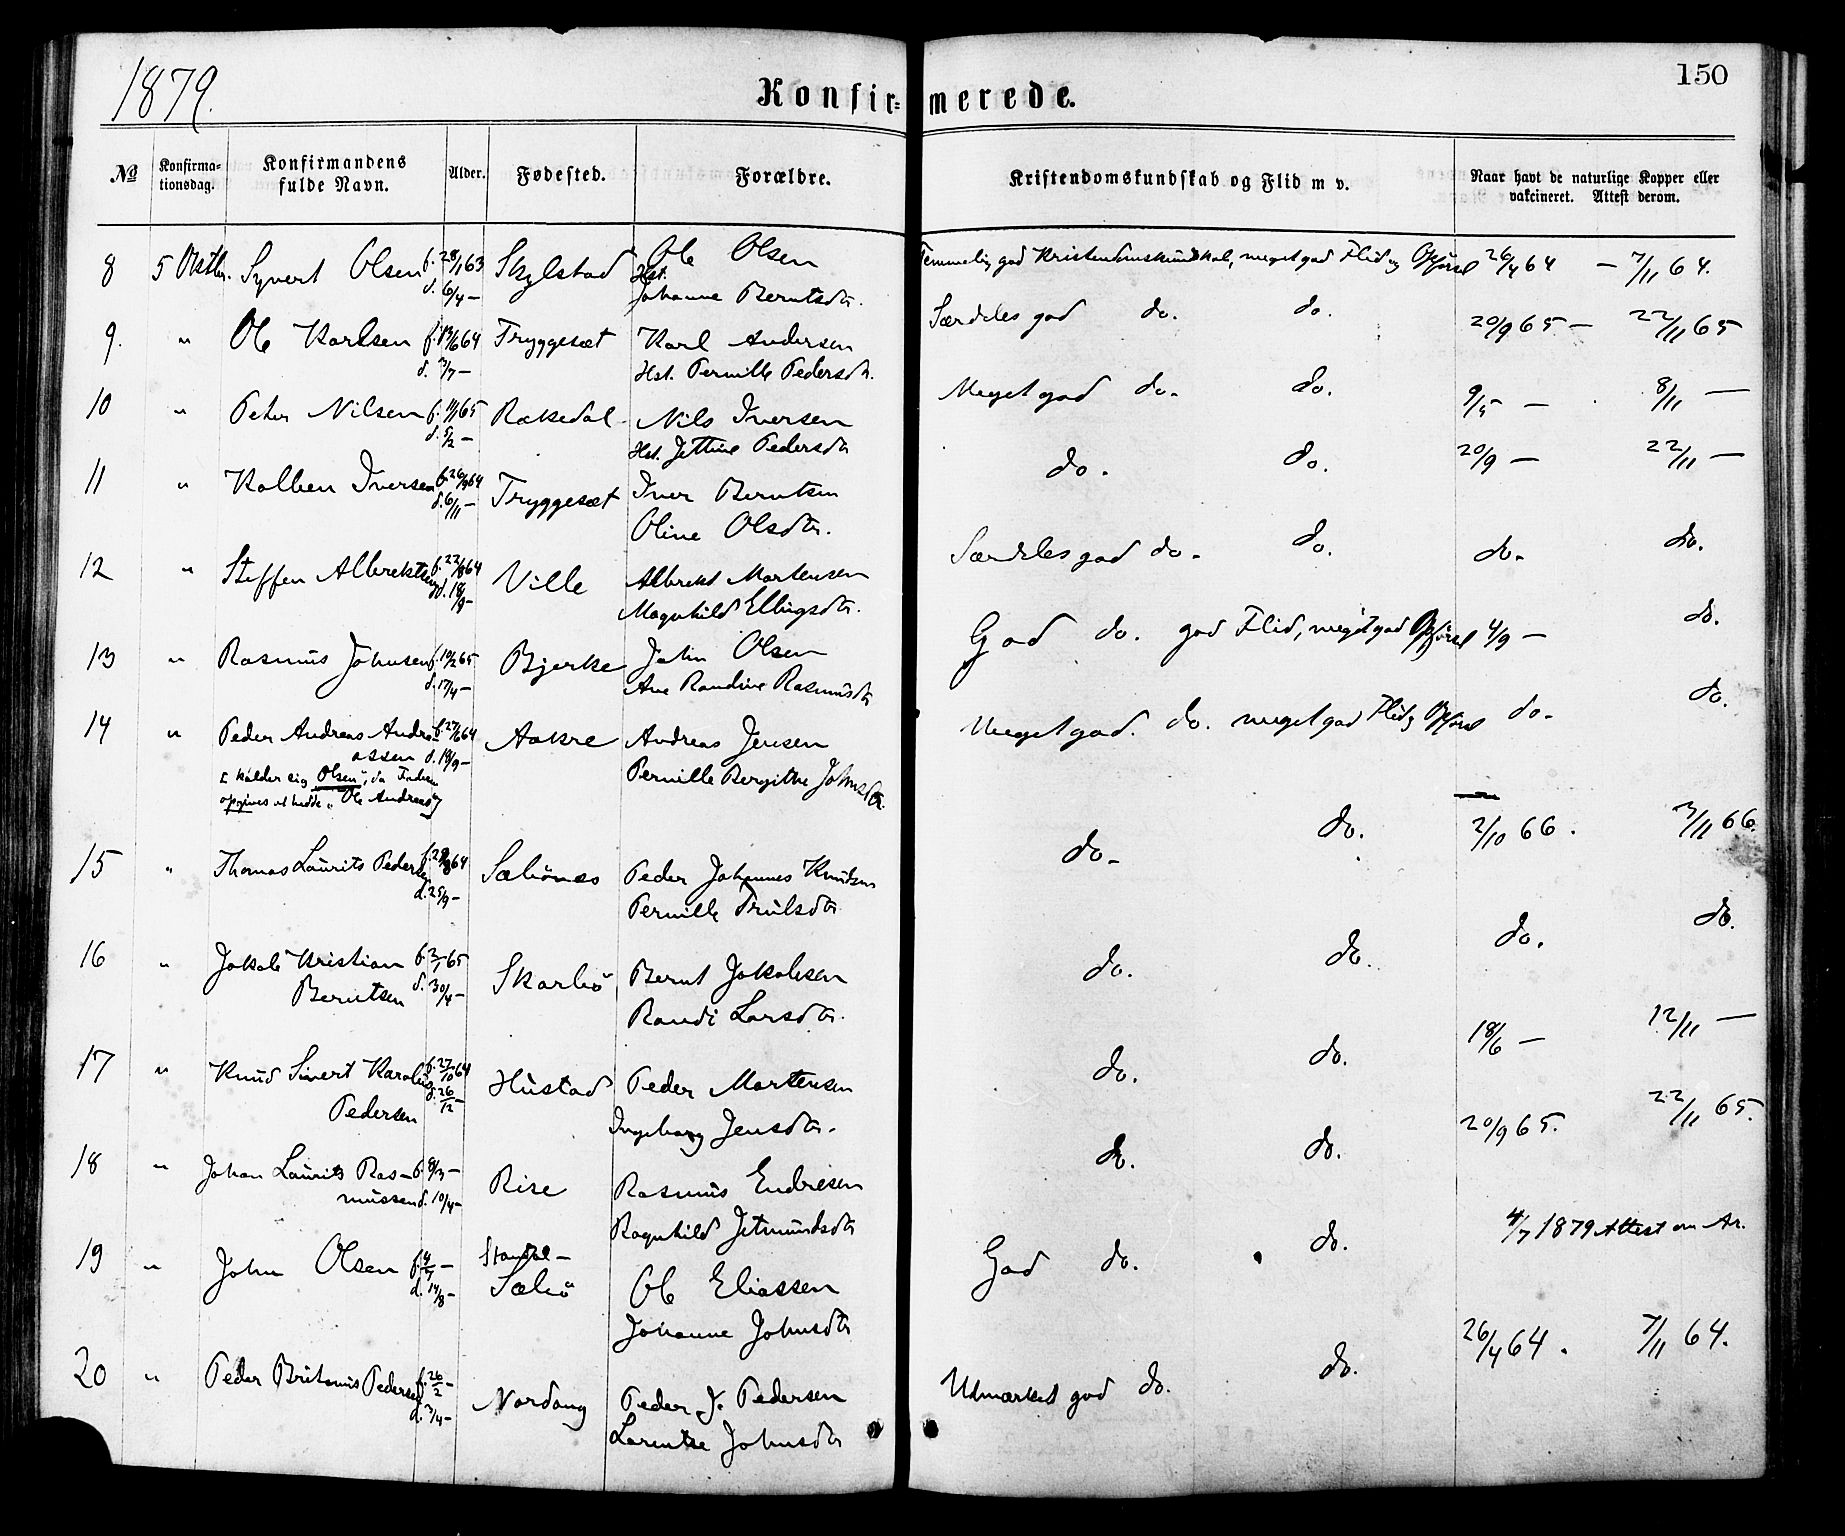 1879.
Konfirmerede.
150
№
Konfirmationsdag.
Konfirmandens fulde Navn.
Alder.
Fødested.
Forældre.
Kristendomskundskab og Flid m v.
Naar havt de naturlige Kopper eller vakcineret. Attest derom.
8 5 Oktbr. Syvert Olsen f. 28/1 63 Skylstad Ole Olsen Temmelig god Kristendomskundskab, meget god Flid og Opførsel 26/4 64 – 7/11 64.
d. 6/4 – Hst. Johanne Berntsdtr.
9. " Ole Karlsen f. 13/6 64 Tryggesæt Karl Andersen Særdeles god do. do. 20/9 65 – 22/11 65
d. 3/7 – Hst. Pernille Pedersdtr.
10 " Peter Nilsen f. 11/1 65 Rakedal Nils Iversen Meget god do. do. 9/5 – 8/11 –
d. 5/2 – Hst. Jettine Pedersdtr
11 " Kolben Iversen f. 26/9 64 Tryggesæt Iver Berntsen do. do. 20/9 – 22/11 –
d. 6/11 – Oline Olsdtr.
12 " Steffen Albrektsen f. 22/8 64 Ville Albrekt Martensen Særdeles god do. do. do. do.
d. 18/9 – Magnhild Ellingsdtr.
13 " Rasmus Johnsen f. 10/2 65 Bjerke John Olsen God do. god Flid, meget god Opførsel 4/9 – do.
d. 17/4 – Ane Randine Rasmusdtr
14 " Peder Andreas Andreassen f. 27/6 64 Aakre Andreas Jensen Meget god. do. meget god Flid og Opførsel do. do.
d. 19/9 – Pernille Bergithe Johnsdtr.
kalder sig "Olsen", da Faderen
opgives at hedde "Ole Andreas"
15 " Thomas Laurits Pedersen f. 29/8 64 Sæbønæs Peder Johannes Knudsen do. do. 2/10 66. 3/11 66.
d. 25/9 – Pernille Trulsdtr
16 " Jakob Kristian Berntsen f. 3/1 65 Skarbø Bernt Jakobsen do. do. do. do.
d. 30/4 – Randi Larsdtr.
17 " Knud Sivert Karolius Pedersen f. 27/10 64 Hustad Peder Martensen do. do. 18/6 – 12/11 –
d. 26/12 – Ingeborg Jensdtr.
18 " Johan Laurits Rasmussen f. 8/3 – Rise Rasmus Endresen do. do. 20/9 65. 22/11 65.
d. 10/4 – Ragnhild Jetmundsdtr
19 " John Olsen f. 4/7 – Standal – Sæbø Ole Eliassen God do. do. 4/7 1879 Attest om Ar.
d. 14/8 – Johanne Johnsdtr
20 " Peder Britanus Pedersen f. 26/2 – Nordang Peder J. Pedersen Udmærket god do. do. 26/4 64. 7/11 64.
d. 3/4 – Larentse Johnsdtr